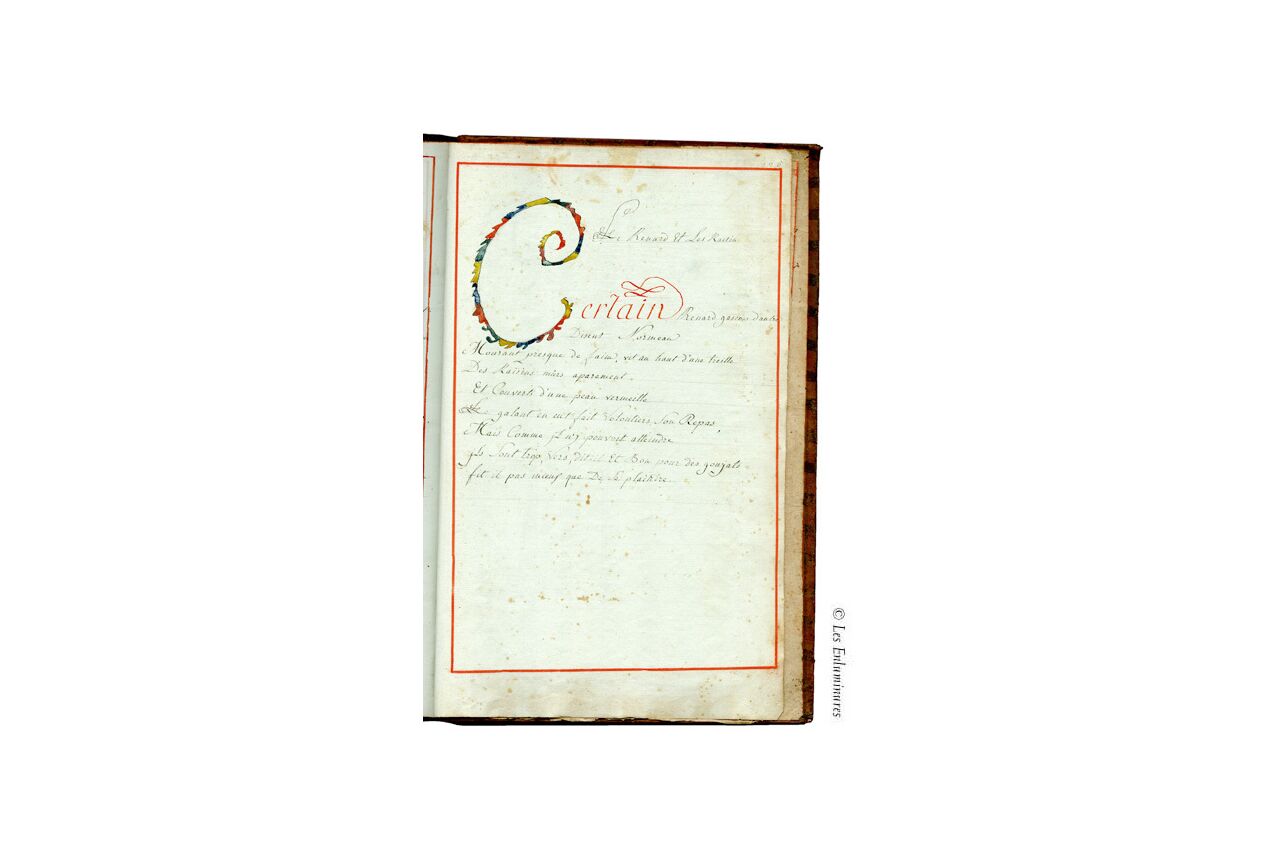 Le Renard Et Les Raisin
Certain Renard gascon d'autre
Disent Normeau
Mourant presque de faim, vit au haut d'une treille
Des Raisins mûrs aparement
Et Couverts d'une peau vermeille
Le galant en eut fait volontiers Son Repas,
Mais Comme il n'y pouvoit atteindre
Ils Sont trop Vers, dit il Et Bon pour des goujats
fit il pas mieux que De Se plaindre
© Les Enluminures